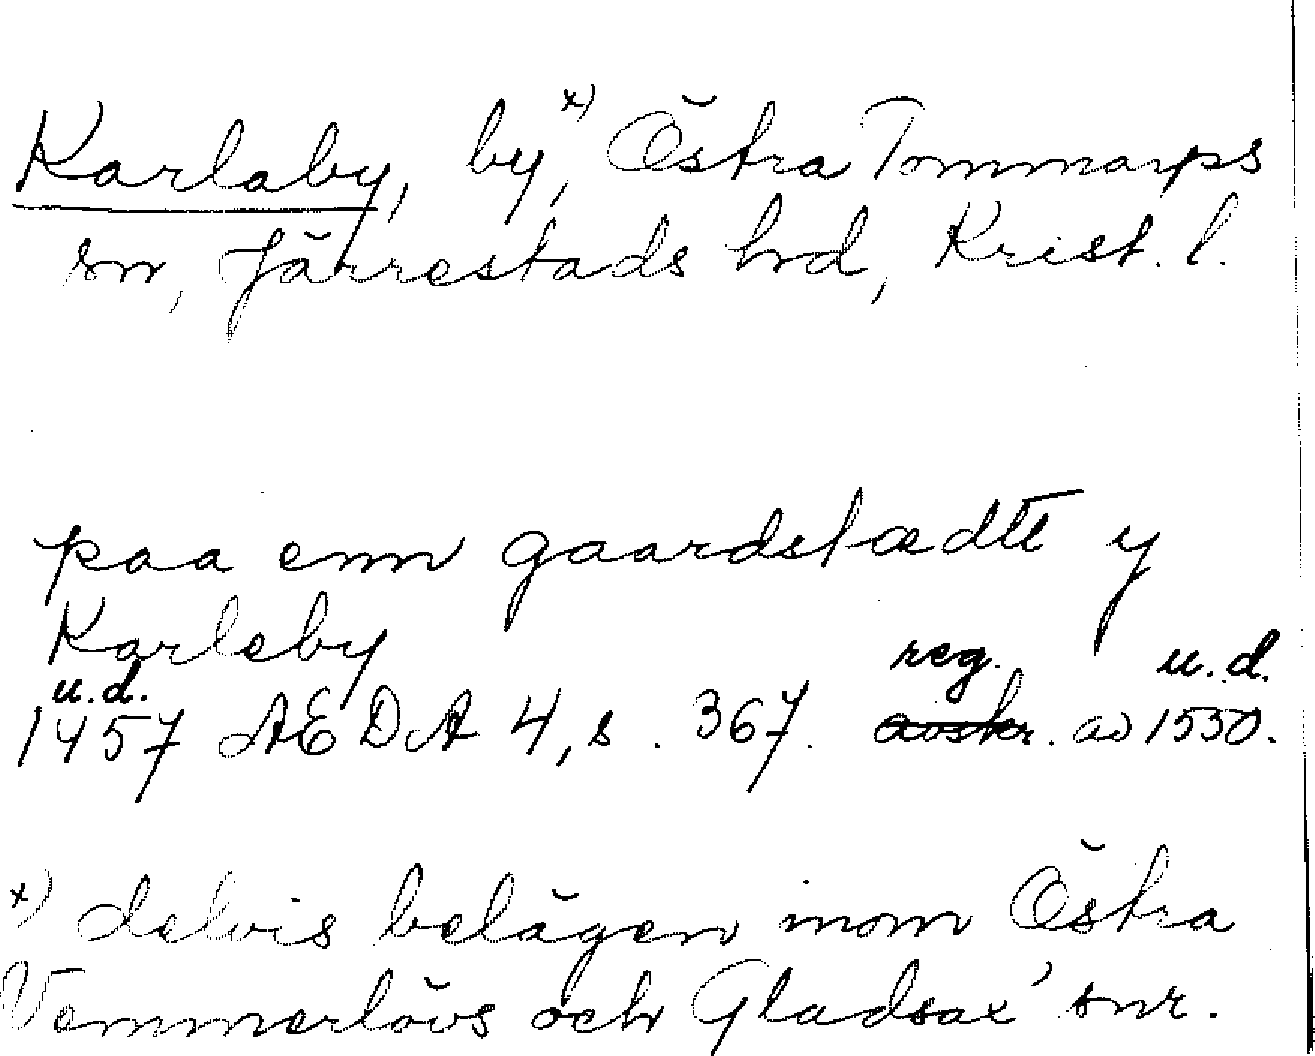 Karlaby, by,ˣ⁾ Östra Tommarps
sn, Järrestads hd, Krist. l.
paa enn gaardstædtt y
Karleby
reg. u.d.
u.d.
1457 ÆDA 4, s. 367. avskr. av 1550.
x) delvis belägen inom Östra
Vemmerlövs och Gladsax' snr.